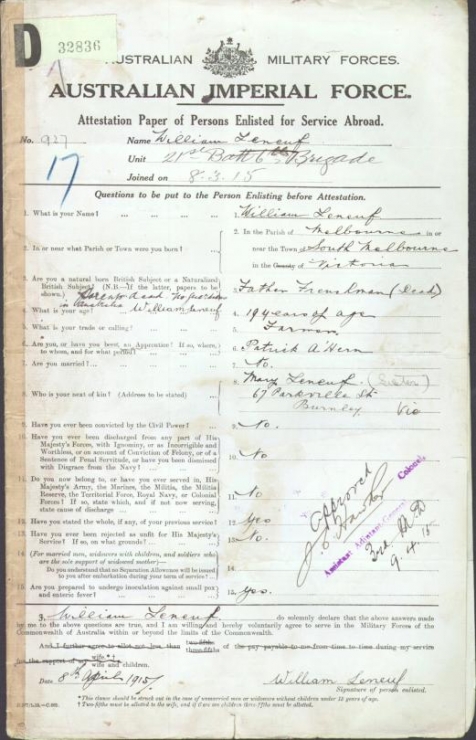 D
32836
AUSTRALIAN MILITARY FORCES.
AUSTRALIAN IMPERIAL FORCE.
Attestation Paper of Persons Enlisted for Service Abroad.
No. 927 Name William Leneuf
17
Unit 21st Batt 6th Brigade
Joined on 8.3.15
Questions to be put to the Person Enlisting before Attestation.
1. What is your Name? ... ... ... ... 1. William Leneuf
2. In or near what Parish or Town were you born? ... 2. In the Parish of Melbourne in or
near the Town of South Melbourne
in the County of Victoria
3. Are you a natural born British Subject or a Naturalized
British Subject? (N.B.—If the latter, papers to be
shown.) 3. Father Frenchman (Dead)
Parents dead No guardian
in Australia William Leneuf
4. What is your age? 4. 19 years of age
5. What is your trade or calling? 5. Farmer
6. Are you, or have you been, an Apprentice? If so, where,
to whom, and for what period? 6. Patrick A'Hern
7. Are you married? ... 7. No.
8. Who is your next of kin? (Address to be stated) ... 8. Mary Leneuf. (Sister)
67 Parkville St
Burnley Vic
9. Have you ever been convicted by the Civil Power? ... 9. No.
10. Have you ever been discharged from any part of His
Majesty's Forces, with Ignominy, or as Incorrigible and
Worthless, or on account of Conviction of Felony, or of a
Sentence of Penal Servitude, or have you been dismissed
with Disgrace from the Navy? ... 10. No
11. Do you now belong to, or have you ever served in, His
Majesty's Army, the Marines, the Militia, the Militia
Reserve, the Territorial Force, Royal Navy, or Colonial
Forces? If so, state which, and if not now serving,
state cause of discharge ... 11. No
12. Have you stated the whole, if any, of your previous service? 12. Yes
13. Have you ever been rejected as unfit for His Majesty's
Service? If so, on what grounds? 13. No.
14. (For married men, widowers with children, and soldiers who
are the sole support of widowed mother)—
Do you understand that no Separation Allowance will be issued
to you after embarkation during your term of service? 14.
15. Are you prepared to undergo inoculation against small pox
and enteric fever? 15. Yes.
Approved
Assistant Adjutant General Colonel.
3rd M D
9.4.15
I, William Leneuf do solemnly declare that the above answers made
by me to the above questions are true, and I am willing and hereby voluntarily agree to serve in the Military Forces of the
Commonwealth of Australia within or beyond the limits of the Commonwealth.
And I further agree to allot not less than two-fifths three-fifths of the pay payable to me from time to time during my service
for the support of my wife*† wife and children.
Date 8th April 1915. William Leneuf
Signature of person enlisted.
*This clause should be struck out in the case of unmarried men or widowers without children under 18 years of age.
† Two-fifths must be allotted to the wife, and if there are children three-fifths must be allotted.